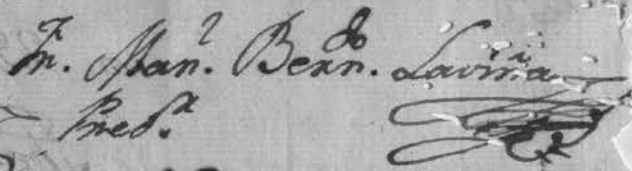 Fr. Man.l Bern.do Laviña
Pred.r